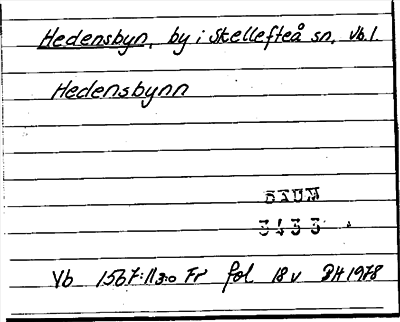 Hedensbyn, by i Skellefteå sn, Vb.l.
Hedensbynn
DAUM
3433
Vb 1567:11 3:0 Fr fol 18 v BH 1978